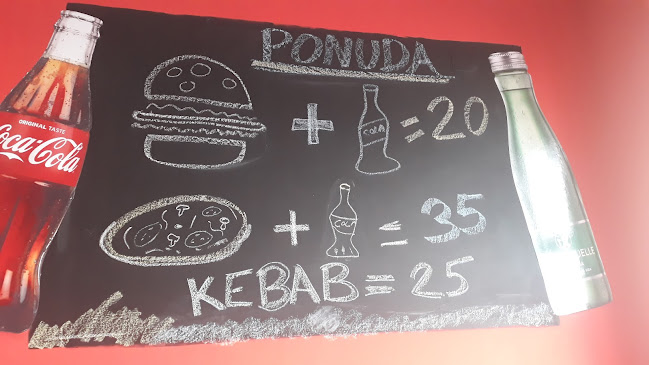 PONUDA
+ COLA = 20
+ COLA = 35
KEBAB = 25
ORIGINAL TASTE
Coca-Cola